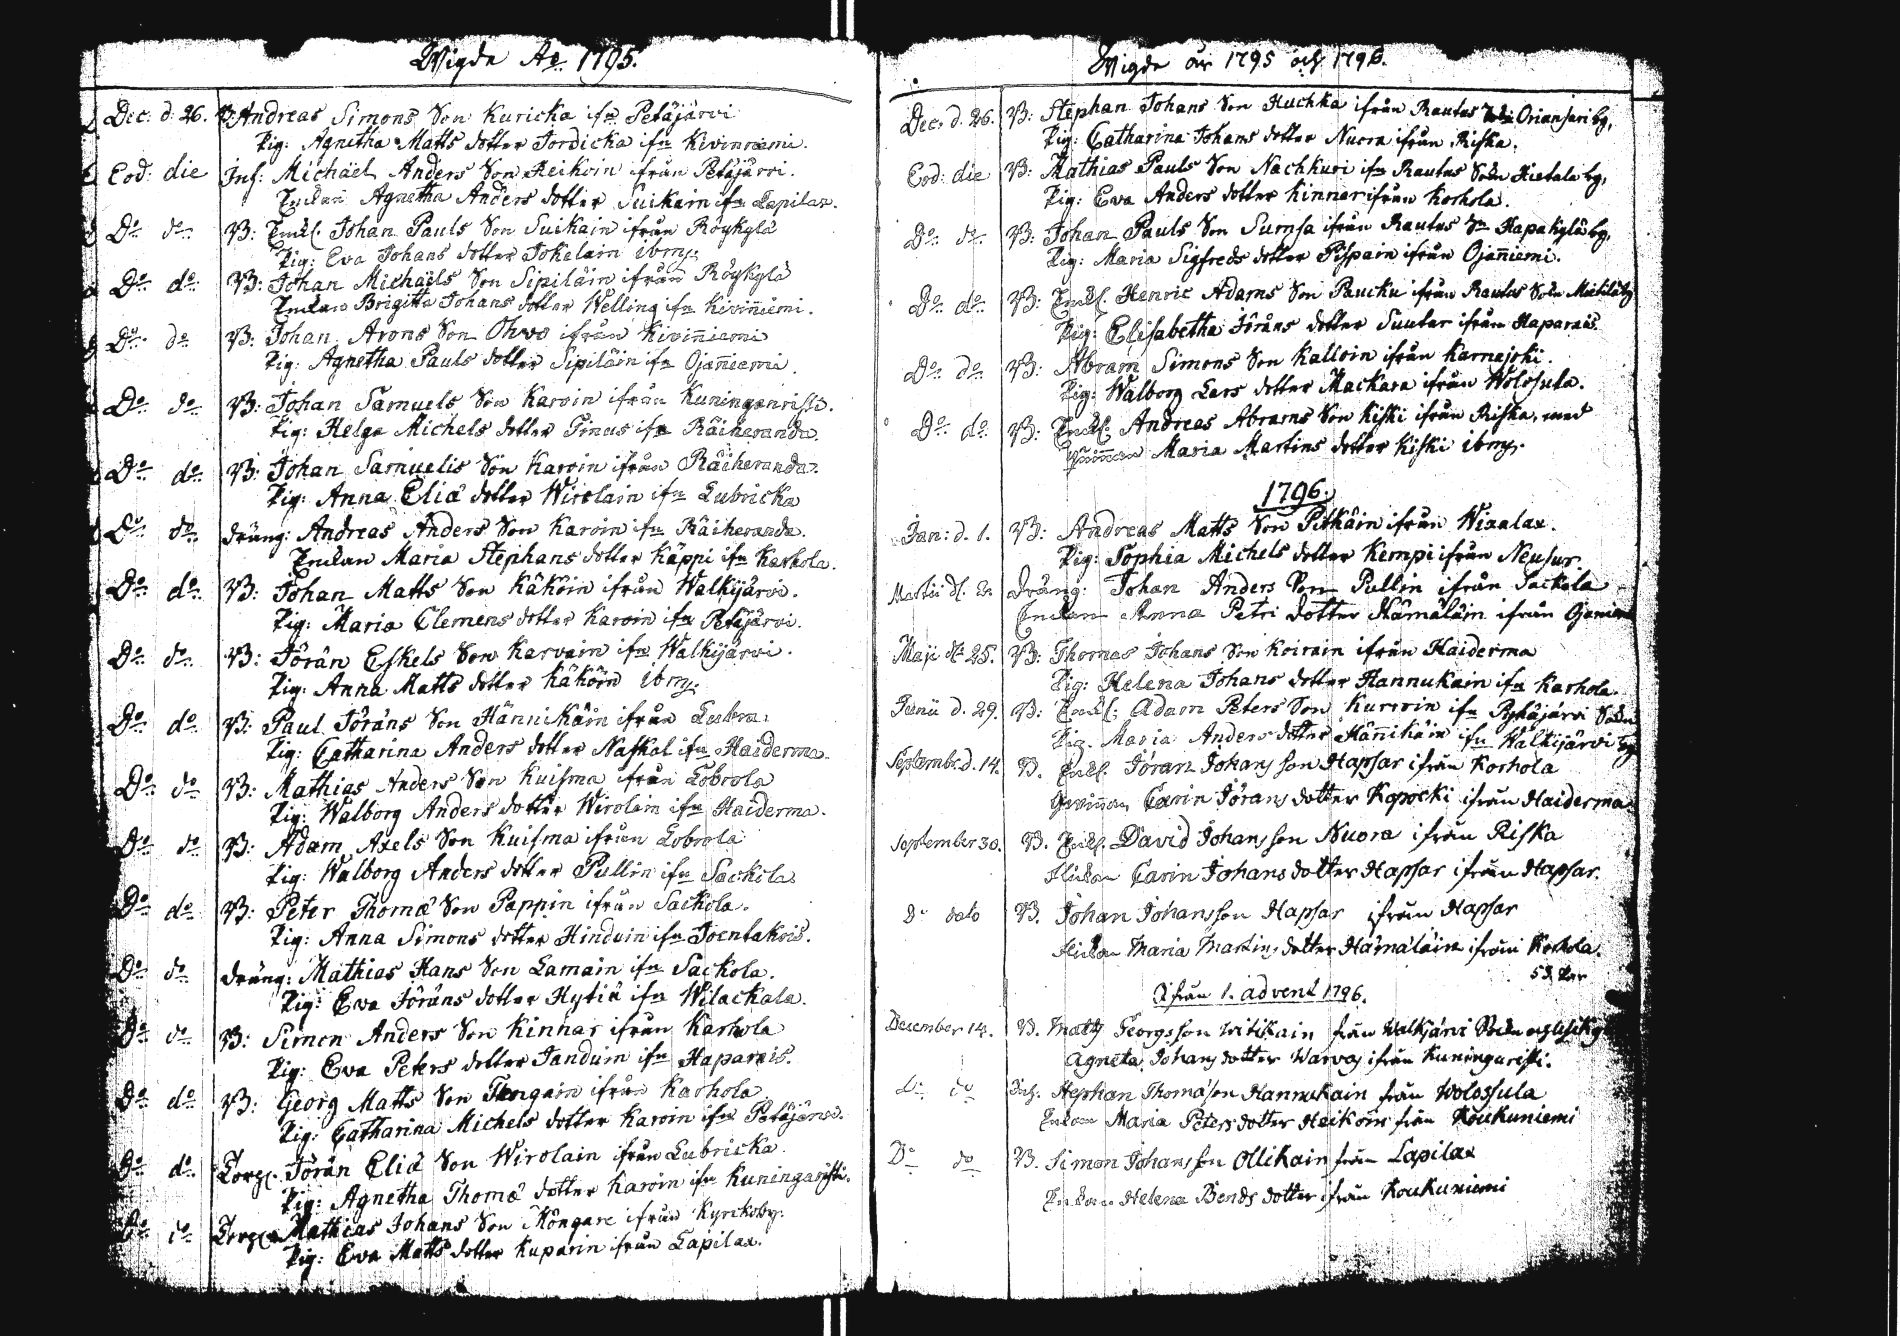 Wigde Ao 1795.
Dec: d. 26. B: Andreas Simons Son Kuricka ifn Petäjärvi
Pig: Agnetha Matts dotter Jordicka ifn Kivinniemi.
Eod: die Inh: Michäel Anders Son Reikoin ifrån Petäjärvi.
Enckan Agnetha Anders dotter Suikain ifn Lapilax.
Do do B: Enckl. Johan Pauls Son Suikain ifrån Röykylä
Pig: Eva Johans dotter Johalain ibm.
Do do B: Johan Michaëls Son Sipiläin ifrån Röykylä
Enckan Brigitta Johans dotter Welling ifn Kiviniemi.
Do do B: Johan Arons Son Ohvo ifrån Kiviniemi
Pig: Agnetha Pauls dotter Sipiläin ifn Ojaniemi.
Do do B: Johan Samuels Son Karvin ifrån Kuninganristi.
Pig: Helga Michels dotter Pineus ifn Räiheranda.
Do do B: Johan Samuelis Son Karvin ifrån Räiheranda.
Pig: Anna Eliä dotter Wirolain ifn Lubricka
Do do dräng: Andreas Anders Son Karvin ifn Räiheranda.
Enckan Maria Stephans dotter Käppi ifn Karhola.
Do do B: Johan Matts Son Käköin ifrån Walkijärvi.
Pig: Maria Clemens dotter Karvin ifn Petäjärvi.
Do do B: Jörän Eskels Son Karvain ifn Walkijärvi.
Pig: Anna Matts dotter Käköin ibm.
Do do B: Paul Jöräns Son Hännikäin ifrån
Pig: Catharina Anders dotter Naskal ifn Haiderma.
Do do B: Mathias Anders Son Kuisma ifrån Lobrola
Pig: Walborg Anders dotter Wirolain ifn Haiderma.
Do do B: Adam Axels Son Kuisma ifrån Lobrola
Pig: Walborg Anders dotter Pullin ifn Sackola
Do do B: Peter Thomä Son Pappin ifrån Sackola.
Pig: Anna Simons dotter Hinduin ifn Joentakois.
Do do dräng: Mathias Hans Son Lamain ifn Sackola.
Pig: Eva Jöräns dotter Hytiä ifn Wilackala.
Do do B: Simon Anders Son Kinnar ifrån Karhola
Pig: Eva Peters dotter Janduin ifn Haparais.
Do do B: Georg Matts Son Tengain ifrån Karhola
Pig: Catharina Michels dotter Karvin ifn Petäjärvi.
Do do Torp. Jörän Eliä Son Wirolain ifrån Lubricka.
Pig: Agnetha Thomä dotter Karvin ifn Kuningaristi.
Do do Torp. Mathias Johans Son Möngare ifrån Kyrckoby.
Pig: Eva Matts dotter Kuparin ifrån Lapilax.
Wigde år 1795 och 1796.
Dec. d. 26. B: Stephan Johans Son Huchka ifrån Rautus Sokn Oriansari by,
Pig: Catharina Johans dotter Nuora ifrån Riska.
Eod: die B: Mathias Pauls Son Nachkuri ifn Rautus Sokn Kietala by,
Pig: Eva Anders dotter Kinnar ifrån Korhola.
Do do B: Johan Pauls Son Sumsa ifrån Rautus Sn Hapakylä by,
Pig: Maria Sigfreds dotter Pispain ifrån Ojaniemi.
Do do B: Enckl. Henric Adams Son Paucku ifrån Rautus Sokn
Pig: Elisabetha Jöräns dotter Suutar ifrån Haparais.
Do do B: Abram Simons Son Kalloin ifrån Karnajoki.
Pig: Walborg Lars dotter Mackara ifrån Wolosula.
Do do B: Enckl. Andreas Abrams Son Kiski ifrån Riska, med
Qvinnan Maria Martins dotter Kiski ibm.
1796.
Jan: d. 1. B: Andreas Matts Son Pitkäin ifrån Wixalax.
Pig: Sophia Michels dotter Kempi ifrån Neusur.
Martii d. dräng: Johan Anders Son Pullin ifrån Sackola
Enckan Anna Petri dotter Hämäläin ifrån Ojaniemi
Maji d. 25. B: Thomas Johans Son Koirain ifrån Haiderma
Pig: Helena Johans dotter Hannukain ifn Karhola.
Junii d. 29. B: Enckl: Adam Peters Son Kurvoin ifn Pyhäjärvi Sokn
Pig. Maria Anders dotter Hännikäin ifn Walkijärvi by
Septembr. d. 14. B. Enckl. Jöran Johans son Hapsar ifrån Korhola
Qwinnan Carin Jörans dotter Kopocki ifrån Haiderma
September 30. B. Enckl. David Johans son Nuora ifrån Riska
Flickan Carin Johans dotter Hapsar ifrån Hapsar.
Do dato B. Johan Johansson Hapsar ifrån Hapsar
Flickan Maria Martins dotter Hämäläin ifrån Korhola.
53 Par
Ifrån 1. advent 1796.
December 14. B. Matts Georgsson Witikain från Walkjärvi Sokn
Agneta Johans dotter Warvas ifrån Kuningaristi.
Do do Inh. Stephan Thomäson Hannukain från Wolossula
Enckan Maria Peters dotter Heikoin från Koukuniemi
Do do B. Simon Johansson Ollikain från Lapilax
Enckan Helena Bends dotter ifrån Koukuniemi